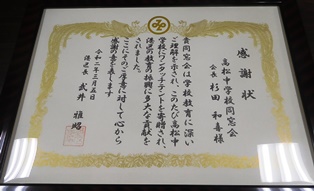 感謝状
高松中学校同窓会
会長 杉田 和喜様
貴同窓会は学校教育に深い
ご理解を示され、このたび高松中
学校にワンタッチテントを寄贈され、
港区の教育の振興に多大な貢献を
されました。
ここにそのご厚意に対して心から
感謝の意を表します
令和三年三月五日
港区長 武井 雅昭